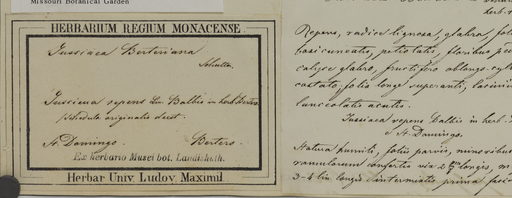 Missouri Botanical Garden
HERBARIUM REGIUM MONACENSE.
Jussiaea Berteriana
Schultes.
Jussieua repens Lin. Balbis in herb. Bertero.
schedula originalis deest.
St. Domingo. Bertero.
Ex herbario Musei bot. Landishuth.
Herbar Univ. Ludov. Maximil
herb. r
Repens, radice lignosa, glabra, foli
basi cuneatis, petiolatis, floribus pe
calyce glabro, fructifero oblongo-cyl
costato, folia longe superanti, lacinii
lanceolatis acutis.
Jussiaea repens Balbis in herb.
St. Domingo.
Statura humili, foliis parvis, minoribus
ramulorum confertis vix 2 longis, m
3-4 lin. longis intermixtis prima facie